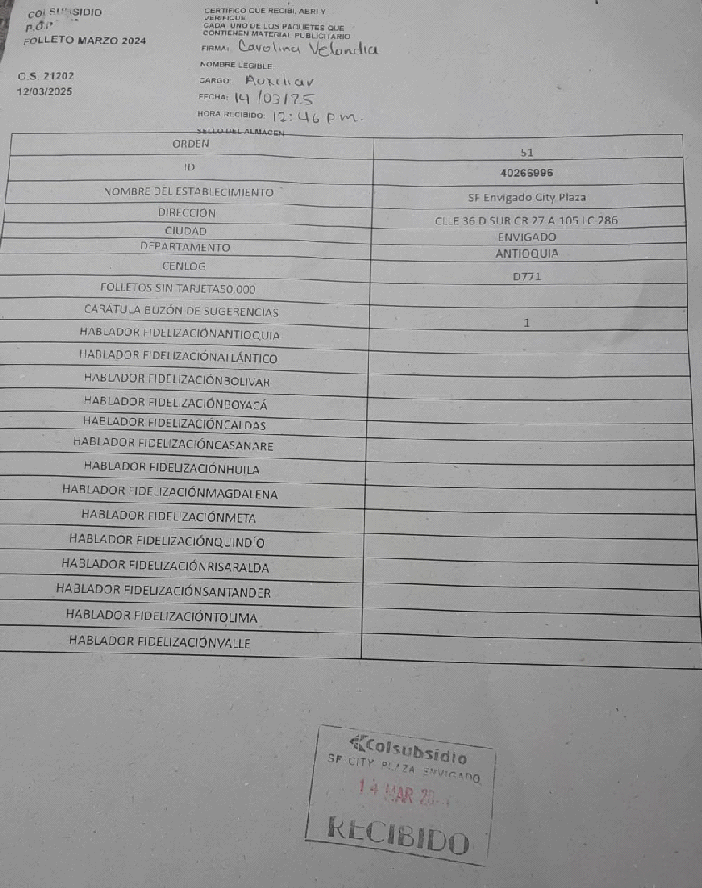 COLSUBSIDIO
P.O.P
FOLLETO MARZO 2024
O.S. 21202
12/03/2025
CERTIFICO QUE RECIBI, ABRI Y
VERIFIQUE
CADA UNO DE LOS PAQUETES QUE
CONTIENEN MATERIAL PUBLICITARIO
FIRMA: Carolina Velandia
NOMBRE LEGIBLE
CARGO: Auxiliar
FECHA: 14/03/25
HORA RECIBIDO: 12:46 Pm.
SELLO DEL ALMACEN
ORDEN 51
ID 40266996
NOMBRE DEL ESTABLECIMIENTO SF Envigado City Plaza
DIRECCION CLLE 36 D SUR CR 27 A 105 LC 286
CIUDAD ENVIGADO
DEPARTAMENTO ANTIOQUIA
CENLOG D771
FOLLETOS SIN TARJETA50.000
CARATULA BUZÓN DE SUGERENCIAS 1
HABLADOR FIDELIZACIÓNANTIOQUIA
HABLADOR FIDELIZACIÓNATLÁNTICO
HABLADOR FIDELIZACIÓNBOLIVAR
HABLADOR FIDELIZACIÓNBOYACÁ
HABLADOR FIDELIZACIÓNCALDAS
HABLADOR FIDELIZACIÓNCASANARE
HABLADOR FIDELIZACIÓNHUILA
HABLADOR FIDELIZACIÓNMAGDALENA
HABLADOR FIDELIZACIÓNMETA
HABLADOR FIDELIZACIÓNQUINDÍO
HABLADOR FIDELIZACIÓNRISARALDA
HABLADOR FIDELIZACIÓNSANTANDER
HABLADOR FIDELIZACIÓNTOLIMA
HABLADOR FIDELIZACIÓNVALLE
Colsubsidio
SF CITY PLAZA ENVIGADO
14 MAR
RECIBIDO